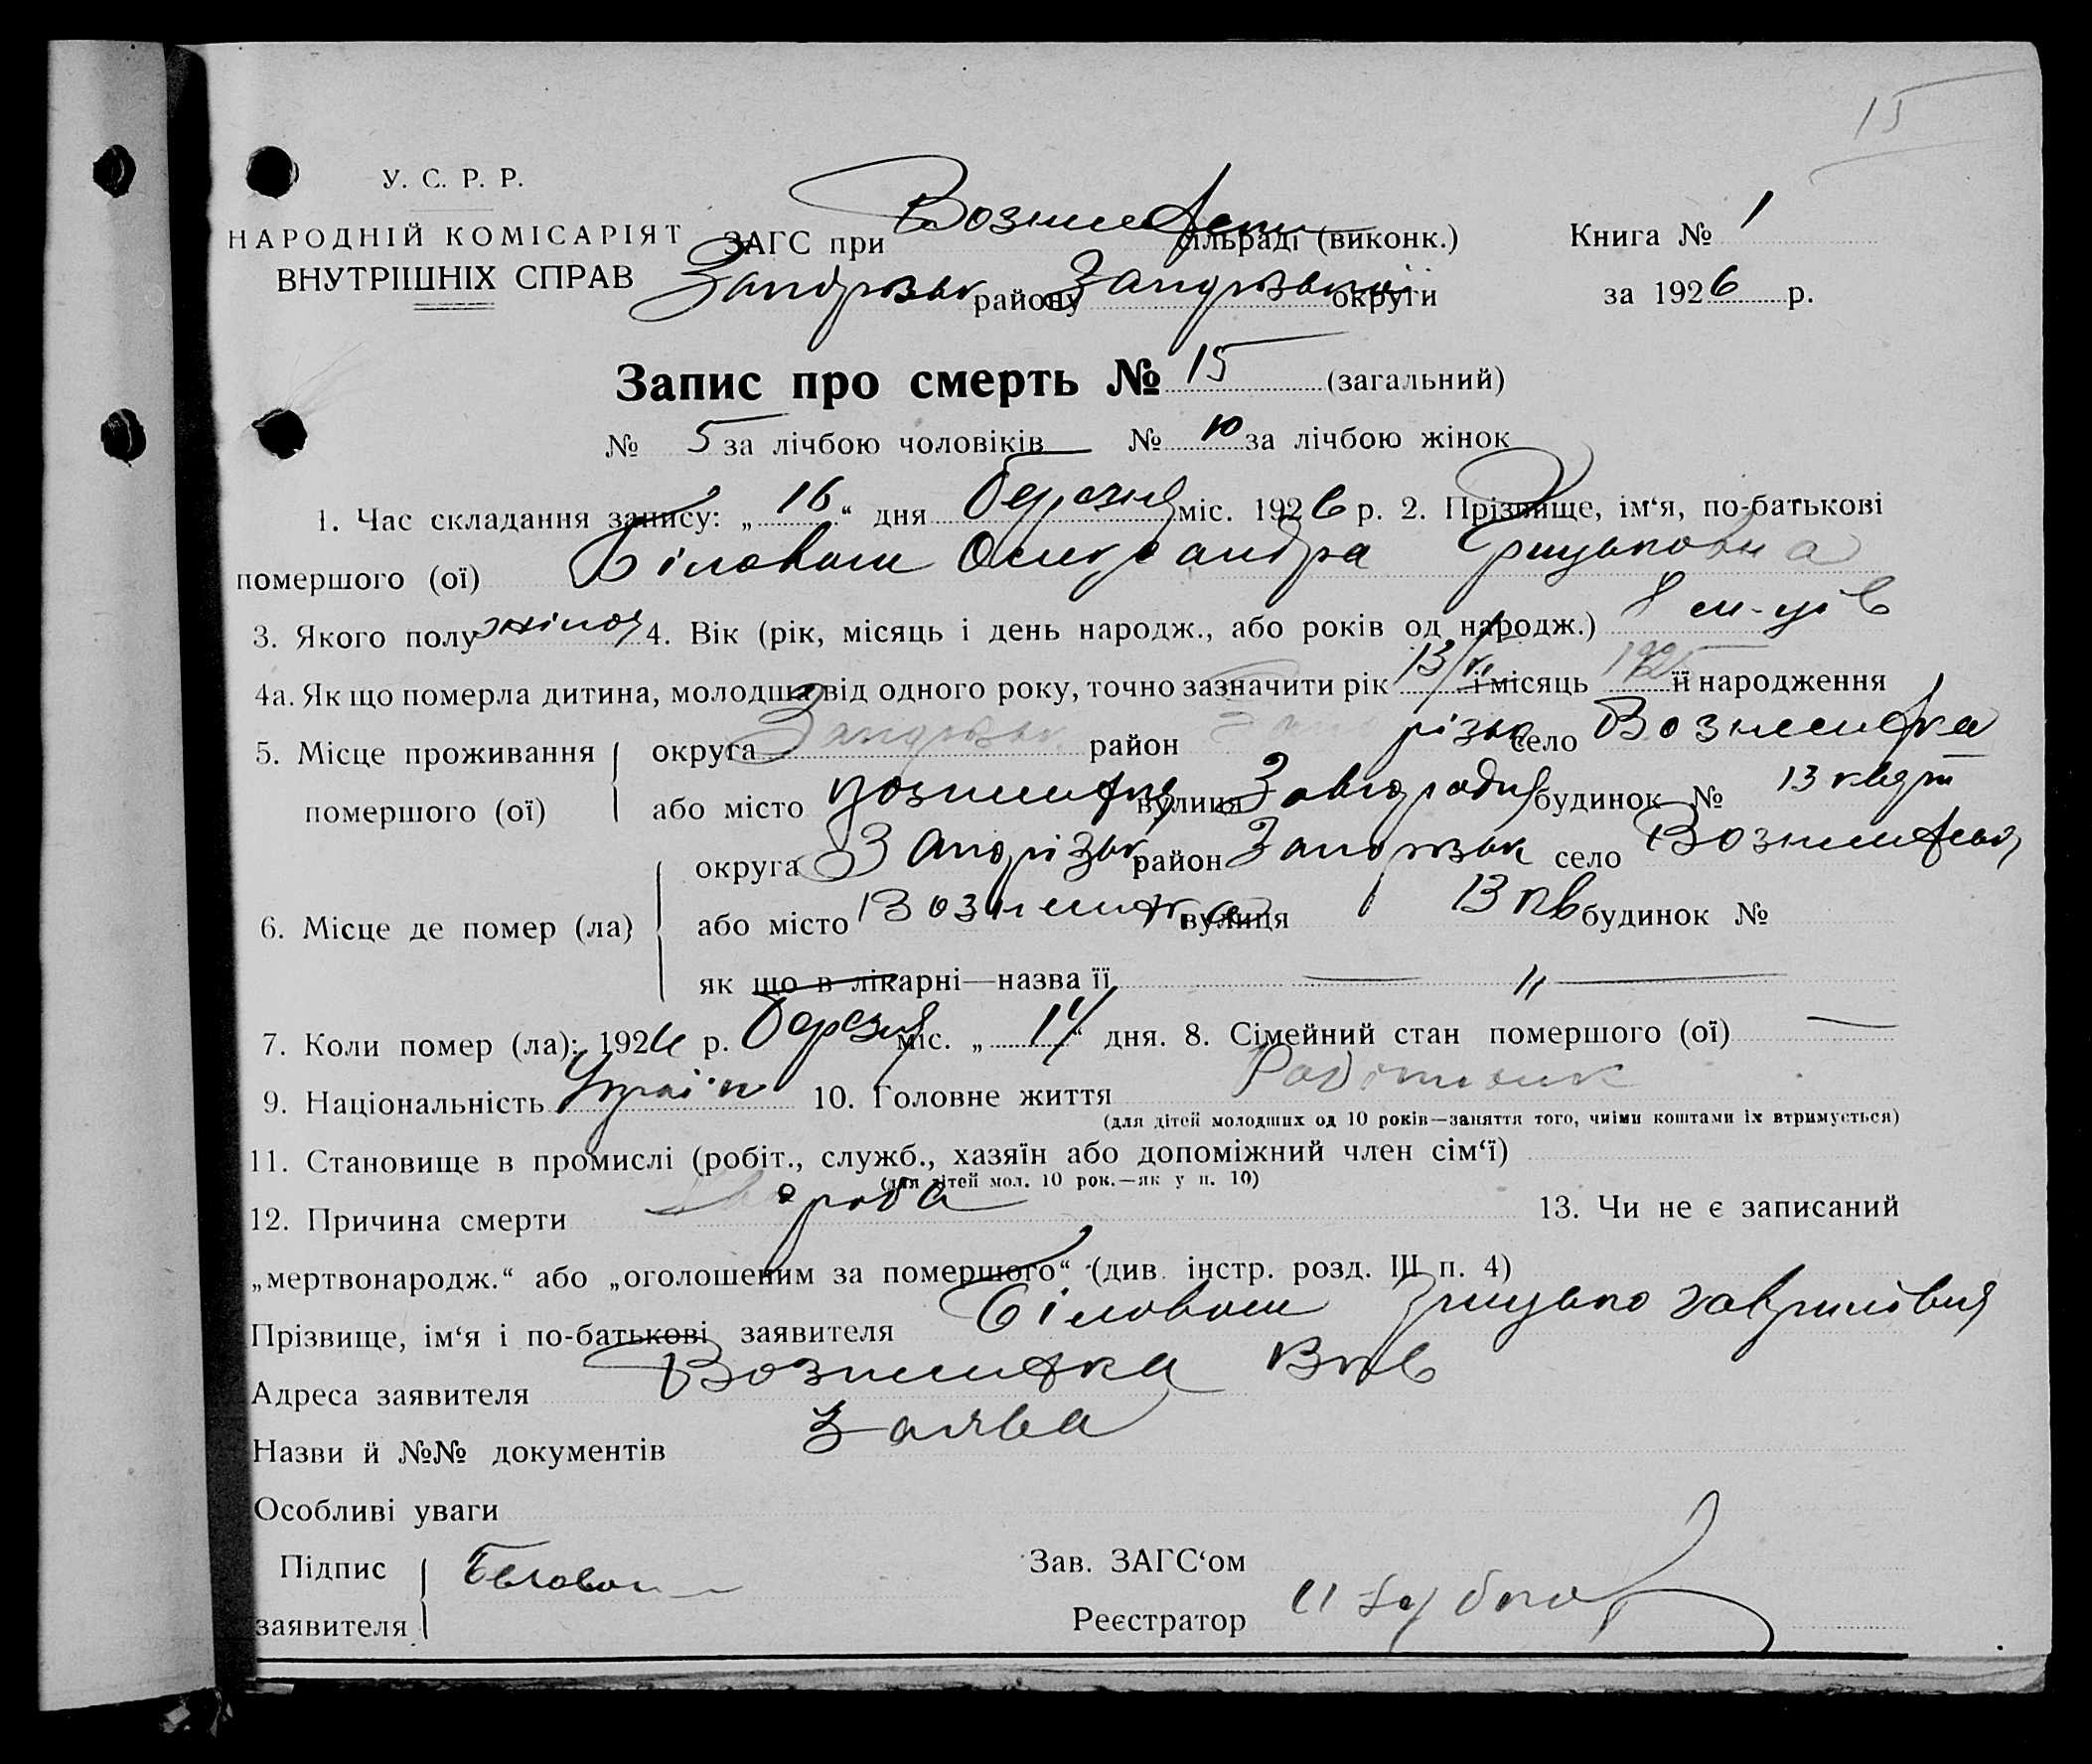 15
У. С. Р. Р.
НАРОДНІЙ КОМІСАРІЯТ
ВНУТРІШНІХ СПРАВ
ЗАГС при Вознесенск сільраді (виконк.)
Запоризьк району Запоризької округи
Книга № 1
за 1926 р.
Запис про смерть № 15 (загальний)
№ 5 за лічбою чоловіків № 10 за лічбою жінок
1. Час складання запису: „16“ дня березня міс. 1926 р. 2. Прізвище, ім‘я, по-батькові
помершого (ої) Біловаш Олександра Грицьковна
3. Якого полу жіноч 4. Вік (рік, місяць і день народж., або років од народж.) 8 м-ців
4а. Як що померла дитина, молодша від одного року, точно зазначити рік 13/ і місяць 1925 її народження
5. Місце проживання помершого (ої) округа Запоризьк район різьк село Вознесенка
або місто Вознесенка вулиця будинок № 13 кварт
6. Місце де помер (ла) округа Запорізьк район Запоризьк село
або місто Вознесенка вулиця 13 кв будинок №
як що в лікарні—назва її — „ —
7. Коли помер (ла): 1926 р. березня міс. „14“ дня. 8. Сімейний стан помершого (ої) —
9. Національність Україн 10. Головне життя Робітник
(для дітей молодших од 10 років—заняття того, чиїми коштами їх втримується)
11. Становище в промислі (робіт., служб., хазяїн або допоміжний член сім‘ї)
(для дітей мол. 10 рок.—як у п. 10)
12. Причина смерти хвороба 13. Чи не є записаний
„мертвонародж.“ або „оголошеним за помершого“ (див. інстр. розд. III п. 4)
Прізвище, ім‘я і по-батькові заявителя Біловаш Грицько Гаврилович
Адреса заявителя Вознесенка
Назви й №№ документів Заява
Особливі уваги
Підпис заявителя Беловаш
Зав. ЗАГС‘ом
Реєстратор